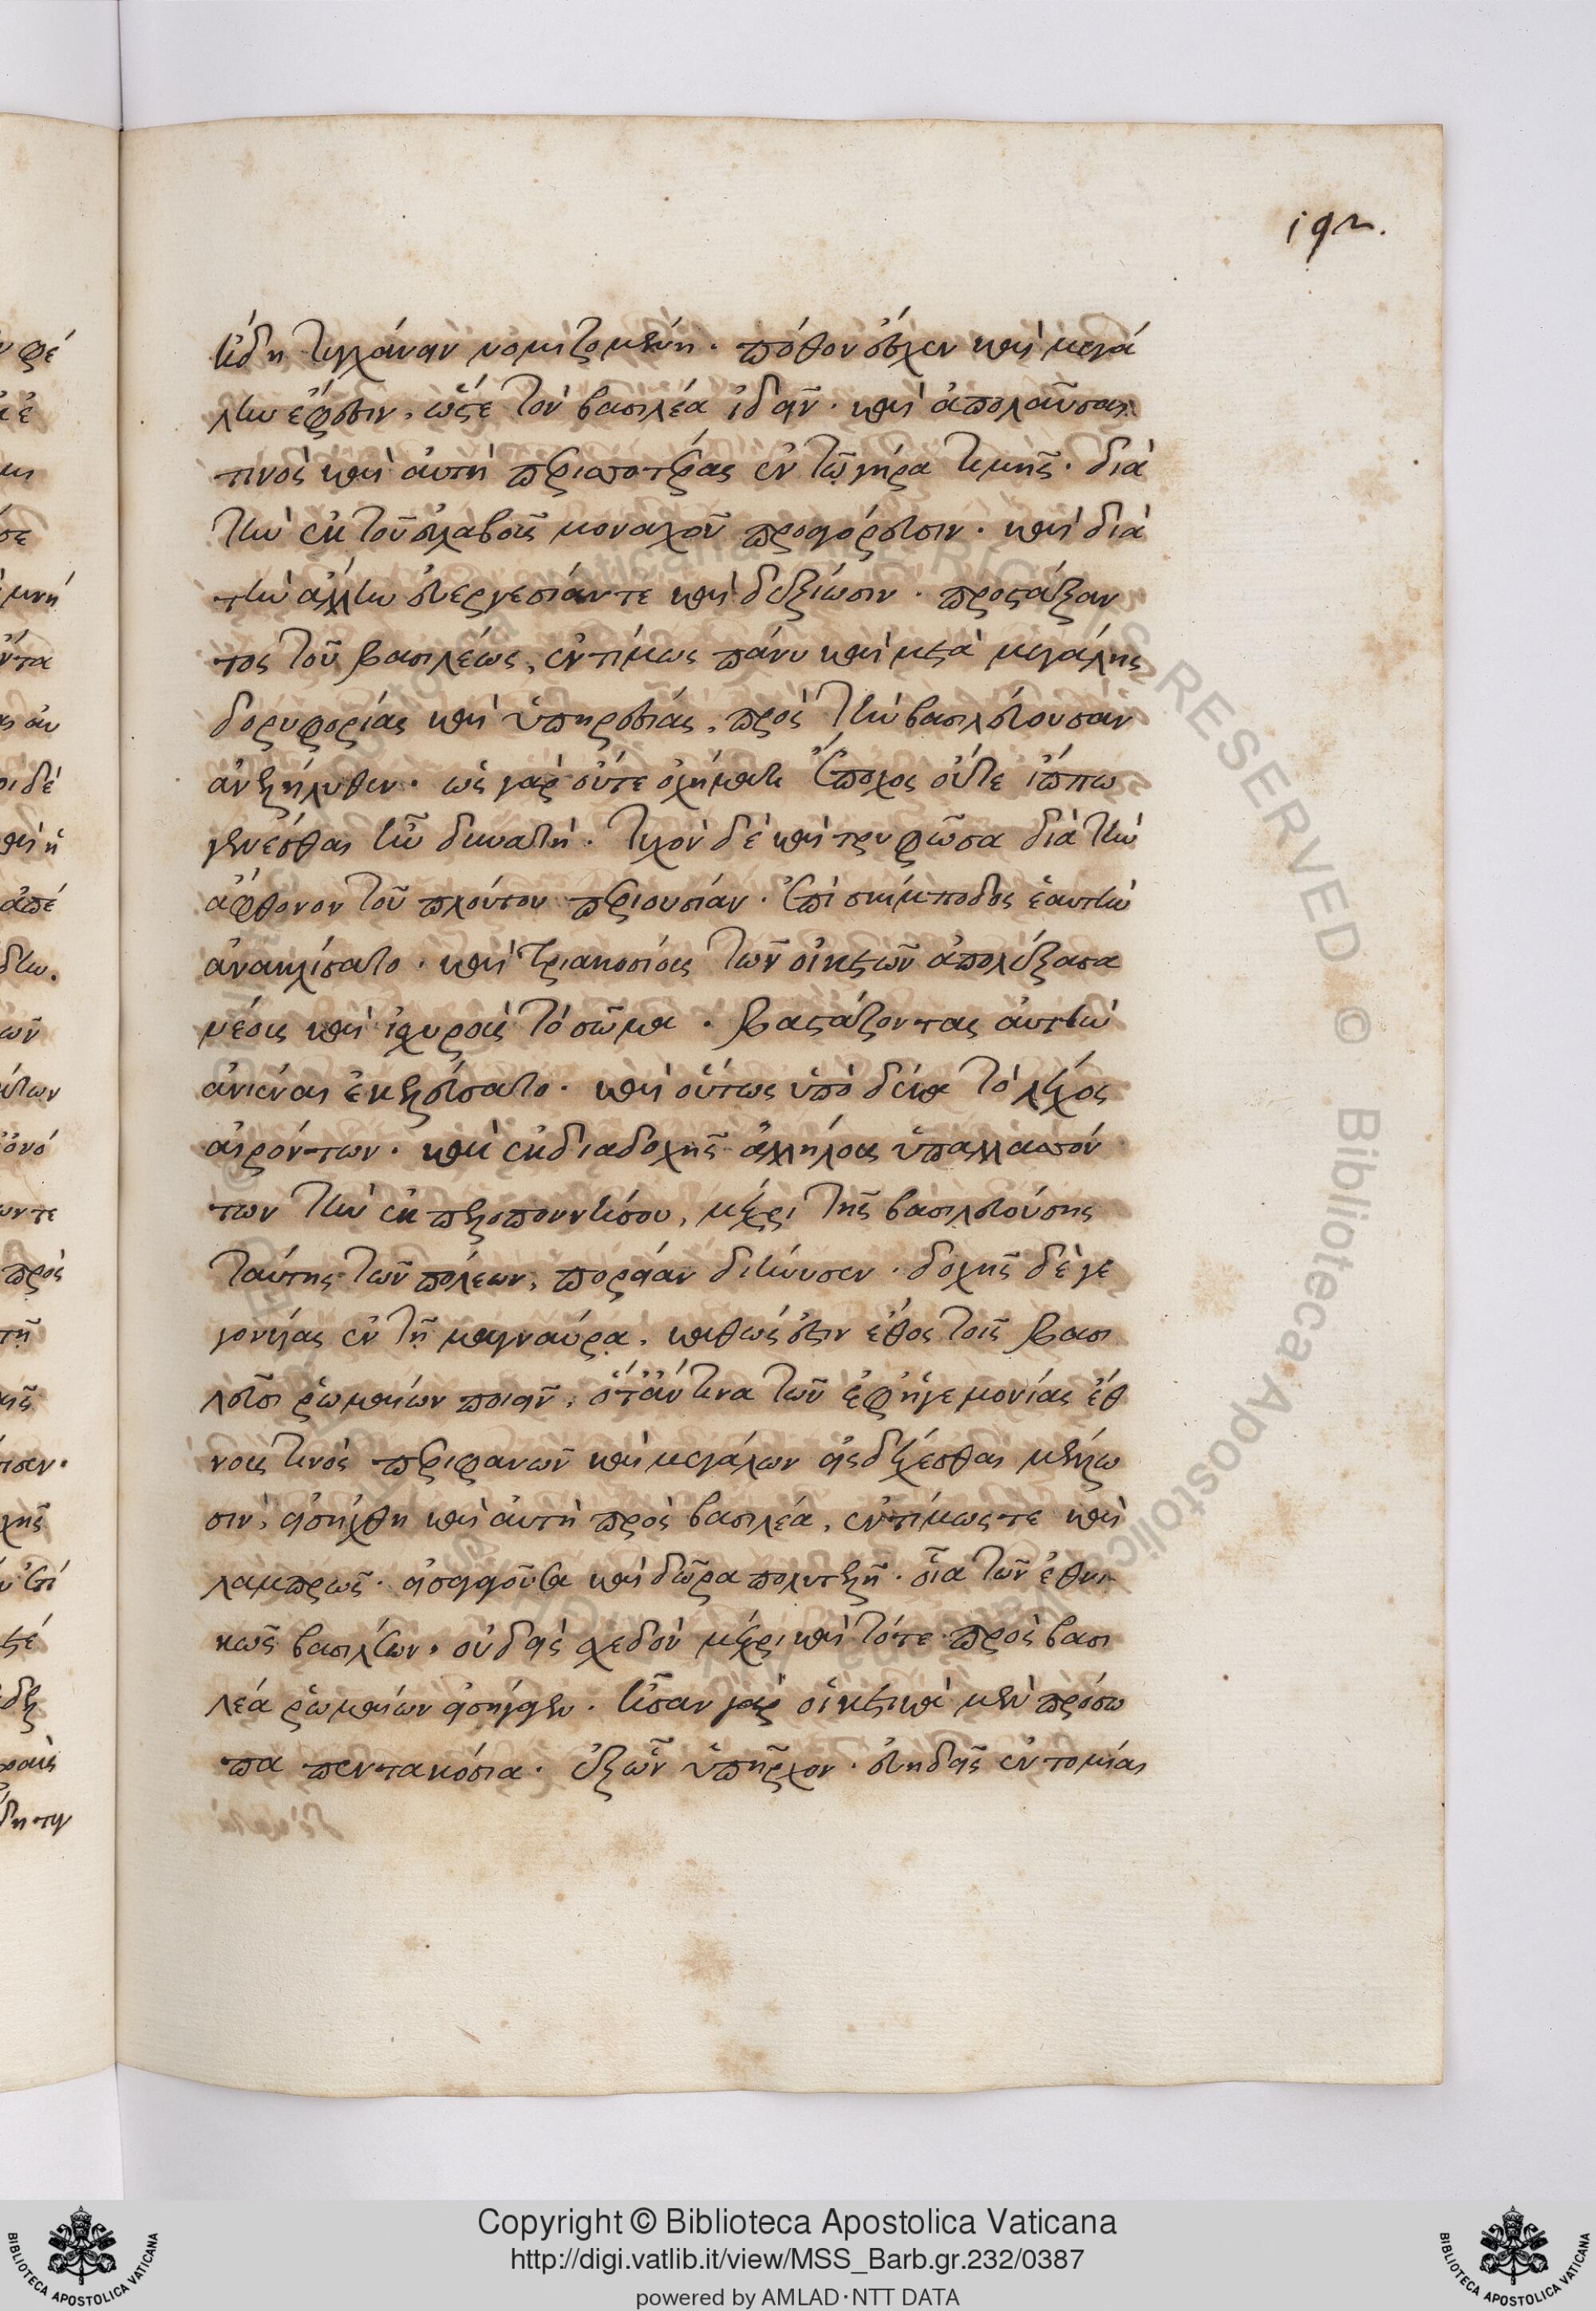 192.
ἤδη τυγχάνειν νομιζομένη. πόθον ἔσχεν καὶ μεγά
λην ἔφεσιν, ὥστε τὸν βασιλέα ἰδεῖν. καὶ ἀπολαῦσαι
τινὸς καὶ αὐτὴ περιττοτέρας ἐν τῷ γήρα τιμῆς. διὰ
τὴν ἐκ τοῦ εὐλαβοῦς μοναχοῦ προαγόρευσιν. καὶ διὰ
τὴν ἄλλην εὐεργεσίαν τε καὶ δεξίωσιν. προστάξαν
τος τοῦ βασιλέως, ἐντίμως πάνυ καὶ μετὰ μεγάλης
δορυφορίας καὶ ὑπηρεσίας, πρὸς τὴν βασιλεύουσαν
ἀνεξήλυθεν. ὡς γὰρ οὔτε ὀχήματι ἔποχος οὔτε ἵππω
γενέσθαι ἦν δυνατὴ. τυχὸν δὲ καὶ τρυφῶσα διὰ τὴν
ἄφθονον τοῦ πλούτου περιουσίαν. ἐπὶ σκίμποδος ἑαυτὴν
ἀνακλίσατο. καὶ τριακοσίους τῶν οἰκετῶν ἀπολέξασα
νέους καὶ ἰσχυροὺς τὸ σῶμα. βαστάζοντας αὐτὴν
ἀνιέναι ἐκελεύσατο. καὶ οὕτως ὑπὸ δέκα τὸ λέχος
αἰρόντων. καὶ ἐκ διαδοχῆς ἀλλήλους ὑπαλλαττόν
των τὴν ἐκ πελοποννήσου, μέχρι τῆς βασιλευούσης
ταύτης τῶν πόλεων, πορείαν διήνυσεν. δοχῆς δὲ γε
γονυίας ἐν τῇ μαγναύρᾳ. καθὼς ἐστιν ἔθος τοῖς βασι
λεῦσι ῥωμαίων ποιεῖν, ὅτ' ἄν τινα τῶν ἐφ' ἡγεμονίας ἔθ
νους τινὸς περιφανῶν καὶ μεγάλων εἰσδέχεσθαι μέλλω
σιν, εἰσήχθη καὶ αὐτὴ πρὸς βασιλέα, ἐντίμως τε καὶ
λαμπρῶς. εἰσαγαγοῦσα καὶ δῶρα πολυτελῆ. οἷα τῶν ἐθνι
κῶν βασιλέων, οὐδεὶς σχεδὸν μέχρι καὶ τότε πρὸς βασι
λέα ῥωμαίων εἰσήγαγεν. ἦσαν γὰρ οἰκετικὰ μὲν πρόσω
πα πεντακόσια. ἐξ ὧν ὑπῆρχον. εὐειδεῖς ἐντομίαι
Copyright © Biblioteca Apostolica Vaticana
http://digi.vatlib.it/view/MSS_Barb.gr.232/0387
powered by AMLAD·NTT DATA